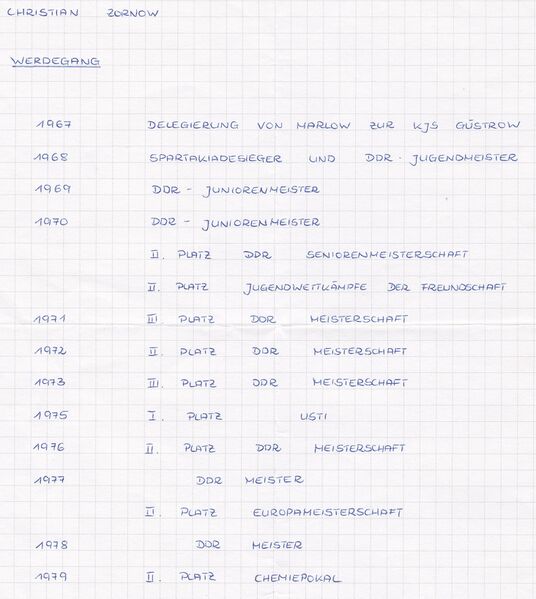 CHRISTIAN ZORNOW
WERDEGANG
1967 DELEGIERUNG VON MARLOW ZUR KJS GÜSTROW
1968 SPARTAKIADESIEGER UND DDR - JUGENDMEISTER
1969 DDR - JUNIORENMEISTER
1970 DDR - JUNIORENMEISTER
II. PLATZ DDR SENIORENMEISTERSCHAFT
II. PLATZ JUGENDWETTKÄMPFE DER FREUNDSCHAFT
1971 III. PLATZ DDR MEISTERSCHAFT
1972 II. PLATZ DDR MEISTERSCHAFT
1973 III. PLATZ DDR MEISTERSCHAFT
1975 I. PLATZ USTI
1976 II. PLATZ DDR MEISTERSCHAFT
1977 DDR MEISTER
II. PLATZ EUROPAMEISTERSCHAFT
1978 DDR MEISTER
1979 II. PLATZ CHEMIEPOKAL